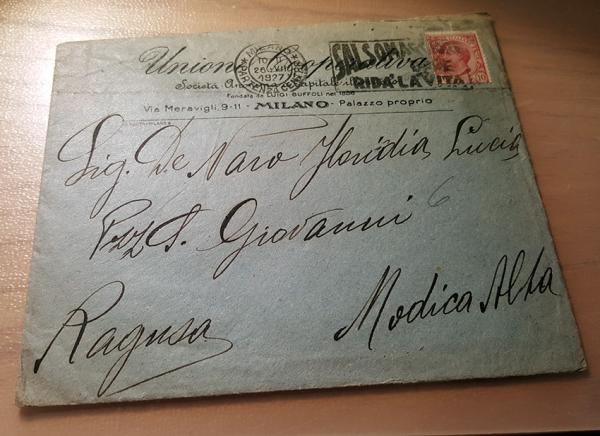 Unione Cooperativa
Società Anonima
Fondata da LUIGI BUFFOLI nel 1886
Via Meravigli, 9-11 - MILANO - Palazzo proprio
MILANO
10
26 VII
1927
SALSOMAGGIORE
RIDÀ LA VITA
Sig. De Naro Floridia, Lucia
Pzz S. Giovanni 6
Ragusa Modica Alta